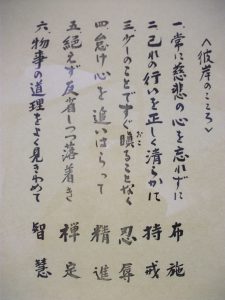 <彼岸のこころ>
一、常に慈悲の心を忘れずに 布施
二、己れの行いを正し清らかに 持戒
三、少しのことですぐ瞋ることなく 忍辱
おこ
四、怠け心を追いはらって 精進
五、絶えず反省しつつ落着き 禅定
六、物事の道理をよく見きわめて 智慧